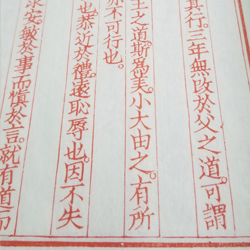 其行。三年無改於父之道。可謂
王之道。斯爲美。小大由之。有所
亦不可行也。
也。恭近於禮。遠恥辱也。因不失
求安。敏於事而慎於言。就有道而